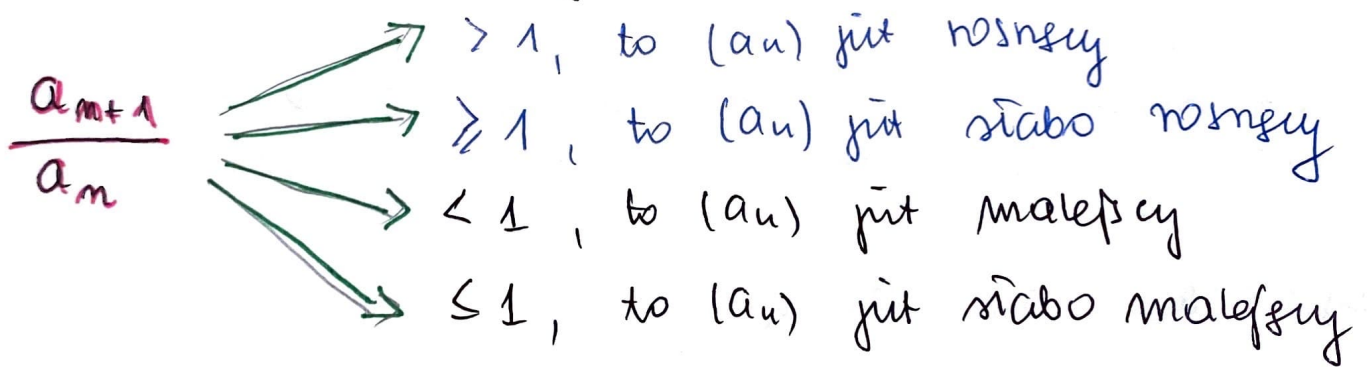 > 1, to (an) jest rosnący
an+1
≥ 1, to (an) jest słabo rosnący
an
< 1, to (an) jest malejący
≤ 1, to (an) jest słabo malejący